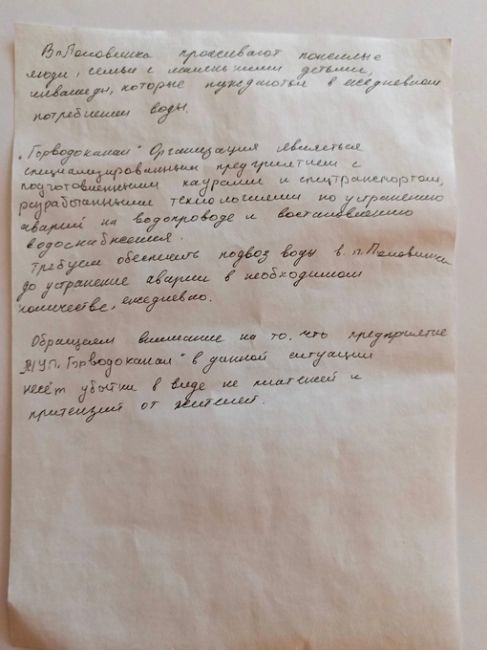 В п. Половинка проживают пожилые
люди, семьи с маленькими детьми,
инвалиды, которые нуждаются в ежедневном
потреблении воды.
„Горводоканал" Организация является
специализированным предприятием с
подготовленными кадрами и спецтранспортом,
разработанными технологиями по устранению
аварий на водопроводе и востановлению
водоснабжения.
Требуем обеспечить подвоз воды в п. Половинка
до устранение аварии в необходимом
количестве, ежедневно.
Обращаем внимание на то, что предприятие
МУП „Горводоканал" в данной ситуации
несёт убытки в виде не платежей и
притензий от жителей.